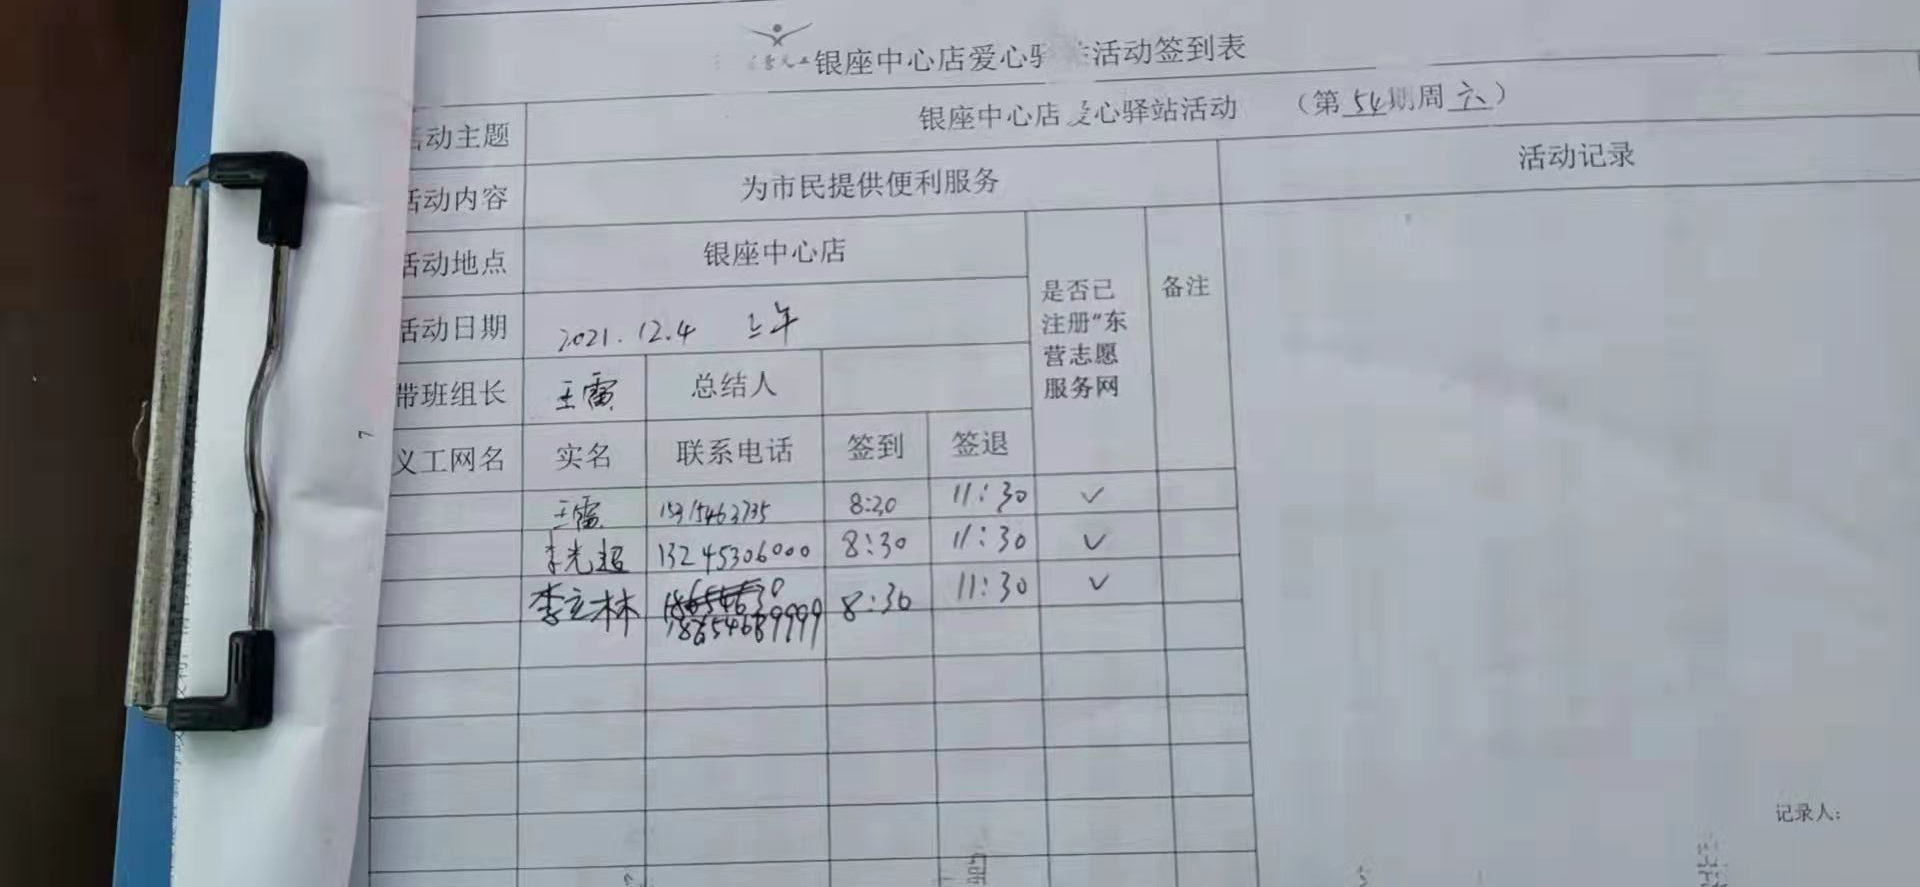 银座中心店爱心驿站活动签到表
活动主题 银座中心店爱心驿站活动 （第54期周六）
活动内容 为市民提供便利服务 活动记录
活动地点 银座中心店 是否已注册“东营志愿服务网 备注
活动日期 2021.12.4 上午
带班组长 王雷 总结人
义工网名 实名 联系电话 签到 签退
王雷 15315463735 8:20 11:30 ✓
李光超 13245306000 8:30 11:30 ✓
李立林 18654689999 8:30 11:30 ✓
记录人: